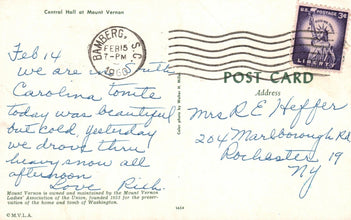 Central Hall at Mount Vernon
Feb 14
we are in South
Carolina tonite
today was beautiful
but cold, yesterday
we drove thru
heavy snow all
afternoon
Love Rich.
Mount Vernon is owned and maintained by the Mount Vernon
Ladies' Association of the Union, founded 1853 for the preser-
vation of the home and tomb of Washington.
© M.V.L.A.
BAMBERG, S.C.
FEB 15
7-PM
U.S. POSTAGE 3¢
LIBERTY
POST CARD
Address
Mrs R E Heffer
204 Marlborough Rd
Rochester 19
NY